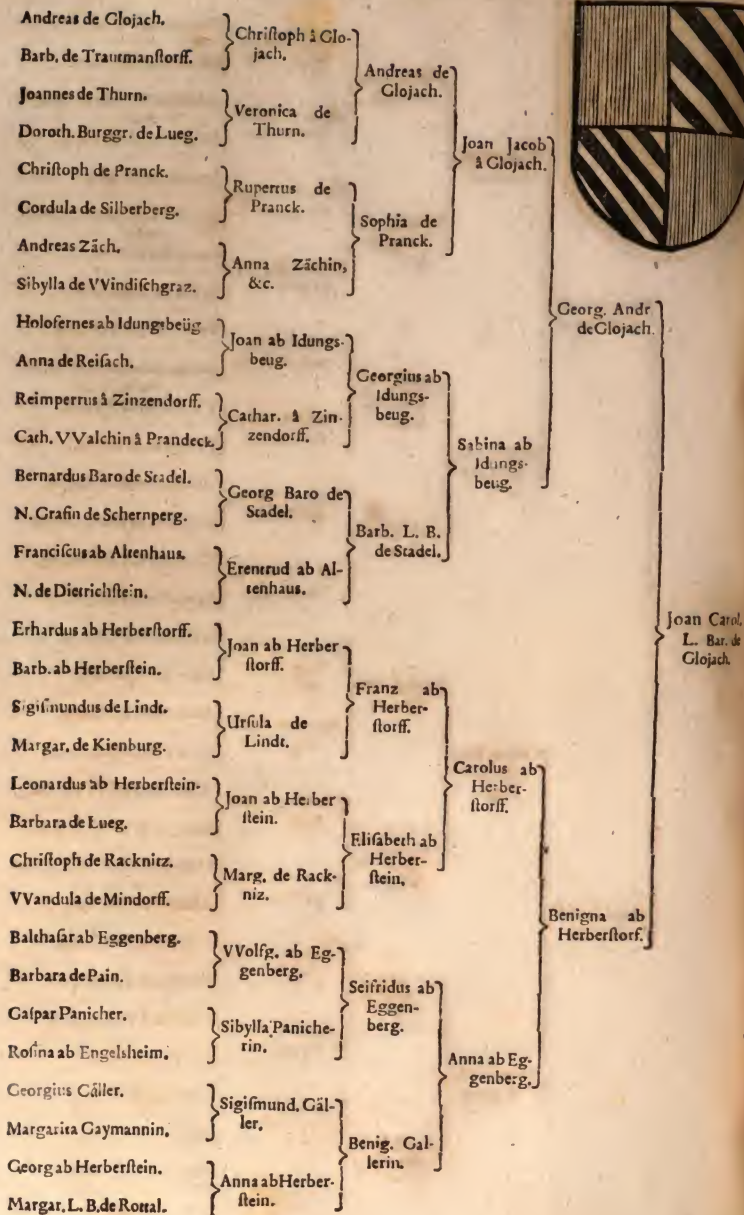 Andreas de Glojach.
Barb. de Trautmanſtorff.
Joannes de Thurn.
Doroth. Burggr. de Lueg.
Chriſtoph de Pranck.
Cordula de Silberberg.
Andreas Zäch.
Sibylla de VVindiſchgraz.
Holofernes ab Idungsbeüg
Anna de Reiſach.
Reimperrus â Zinzendorff.
Cath. VValchin â Prandeck.
Bernardus Baro de Stadel.
N. Grafin de Schernperg.
Franciſcus ab Altenhaus.
N. de Dietrichſtein.
Erhardus ab Herberſtorff.
Barb. ab Herberſtein.
Sigiſmundus de Lindt.
Margar. de Kienburg.
Leonardus ab Herberſtein.
Barbara de Lueg.
Chriſtoph de Racknitz.
VVandula de Mindorff.
Balthaſar ab Eggenberg.
Barbara de Pain.
Gaſpar Panicher.
Roſina ab Engelsheim.
Georgius Cäller.
Margarita Gaymannin.
Georg ab Herberſtein.
Margar. L. B. de Rottal.
Chriſtoph â Glo-
jach.
Veronica de
Thurn.
Rupertus de
Pranck.
Anna Zächin,
&c.
Joan ab Idungs-
beug.
Cathar. â Zin-
zendorff.
Georg Baro de
Stadel.
Erentrud ab Al-
tenhaus.
Joan ab Herber
ſtorff.
Urſula de
Lindt.
Joan ab Herber
ſtein.
Marg. de Rack-
niz.
VVolfg. ab Eg-
genberg.
Sibylla Paniche-
rin.
Sigiſmund. Gäl-
ler.
Anna ab Herber-
ſtein.
Andreas de
Glojach.
Sophia de
Pranck.
Georgius ab
Idungs-
beug.
Barb. L. B.
de Stadel.
Franz ab
Herber-
ſtorff.
Eliſabeth ab
Herber-
ſtein.
Seifridus ab
Eggen-
berg.
Benig. Gal-
lerin.
Joan Jacob
â Glojach.
Sabina ab
Idungs-
beug.
Carolus ab
Herber-
ſtorff.
Anna ab Eg-
genberg.
Georg. Andr
de Glojach.
Benigna ab
Herberſtorf.
Joan Carol.
L. Bar. de
Glojach.